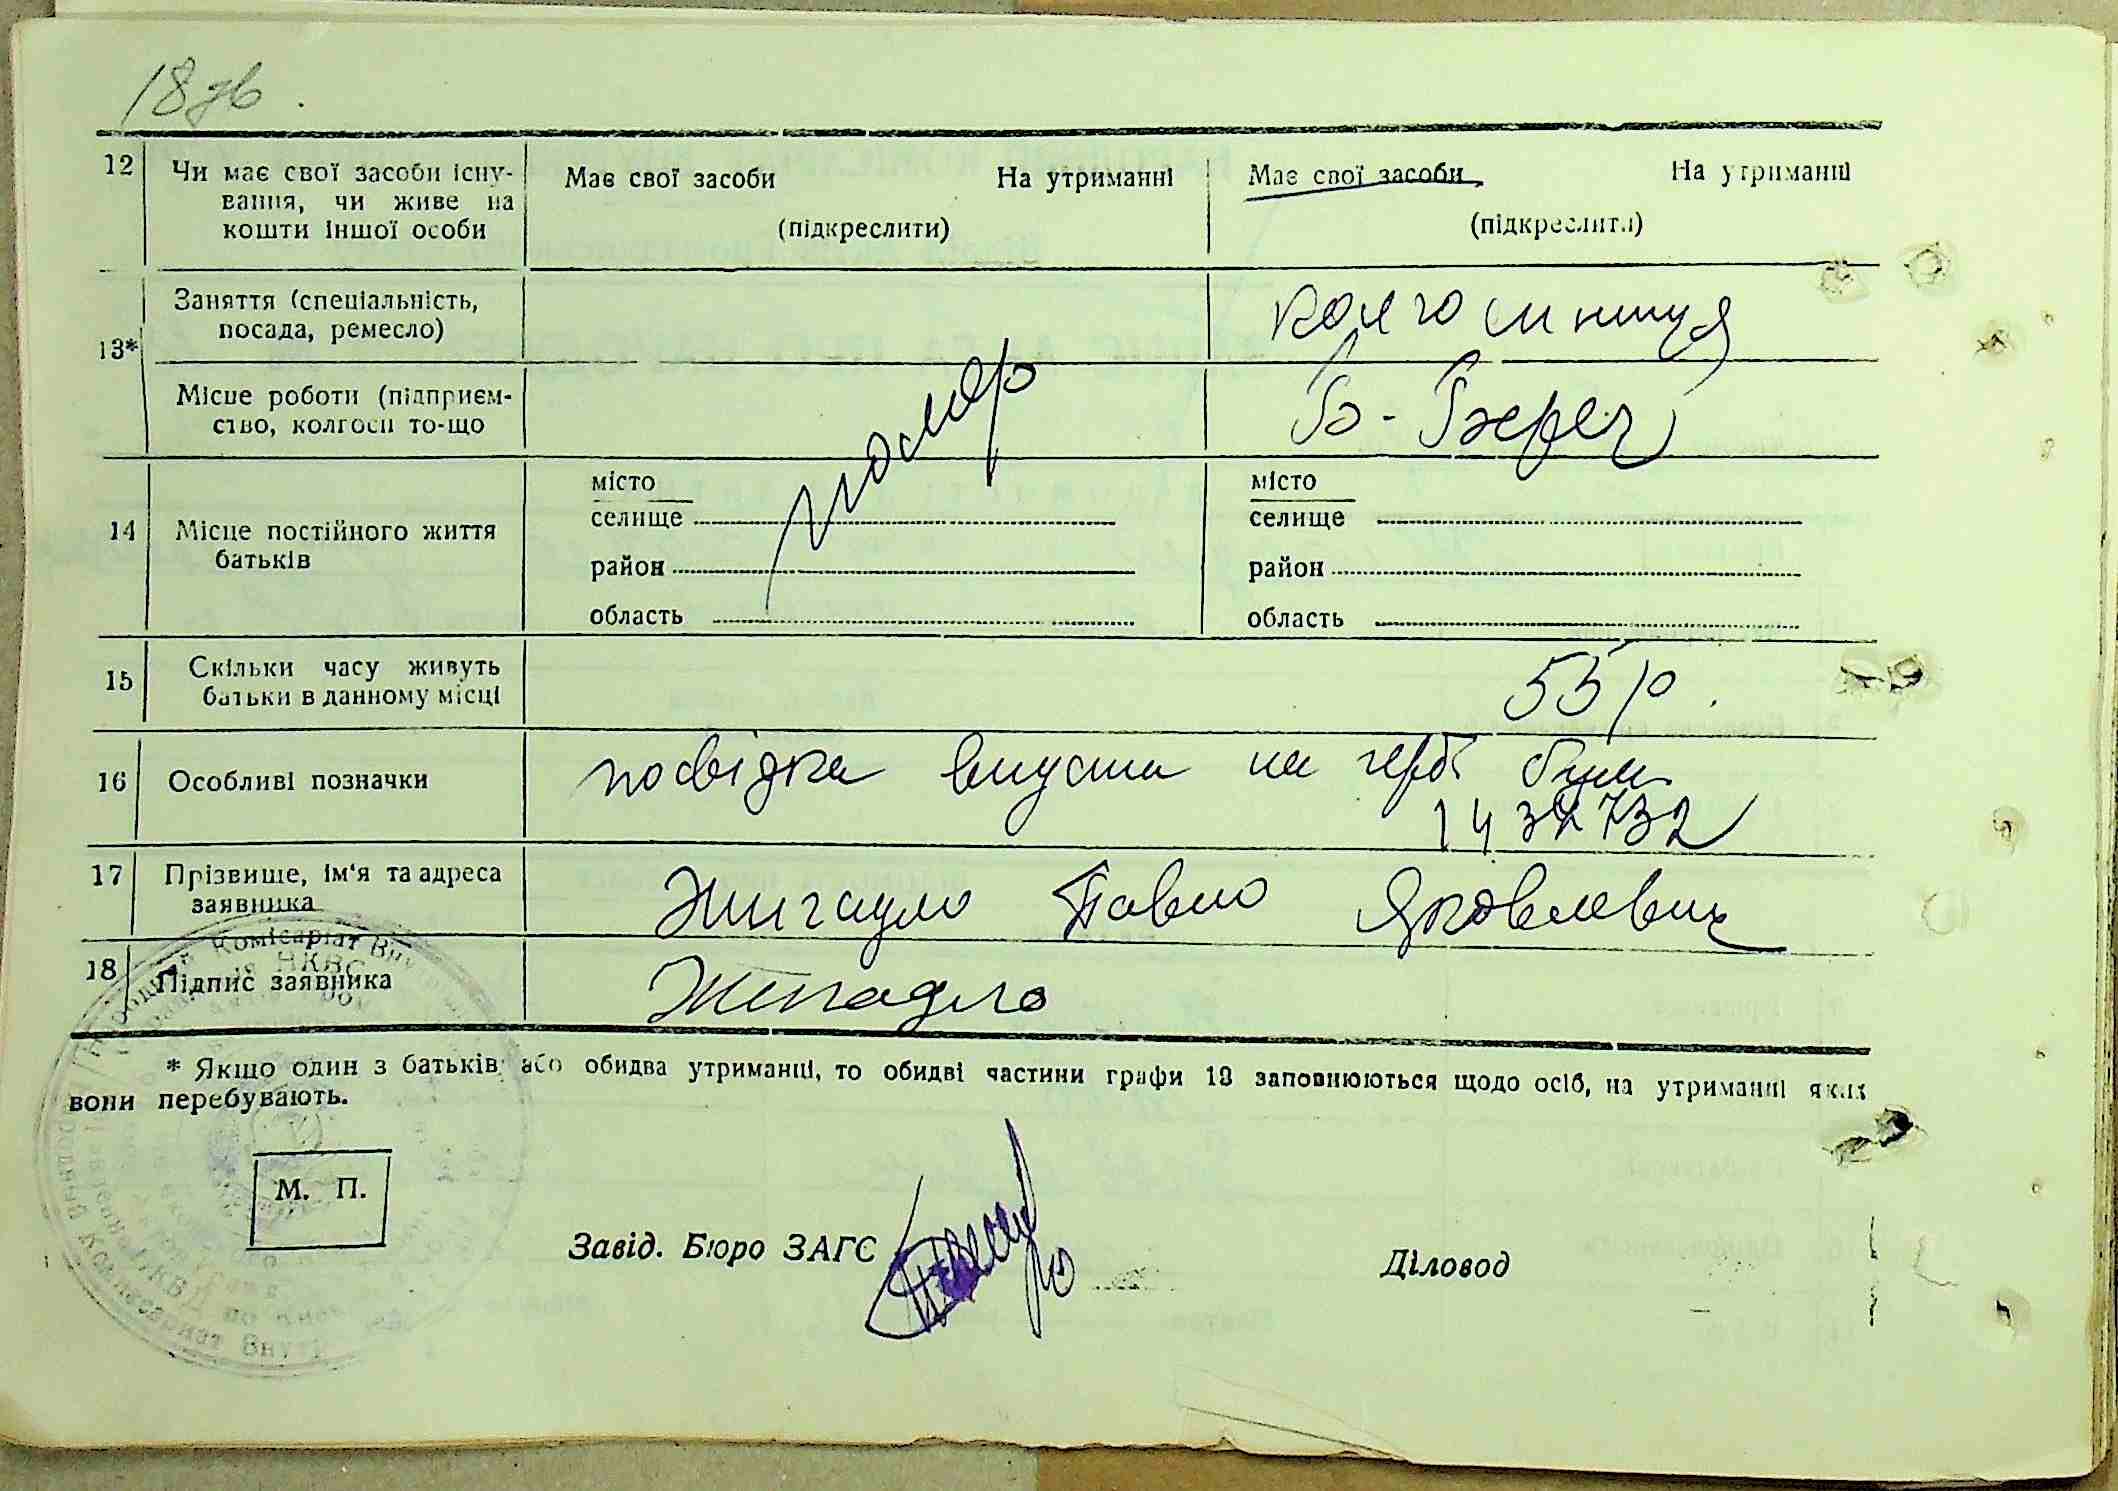 18зв.
12
Чи має свої засоби існу-
вання, чи живе на
кошти іншої особи
Має свої засоби На утриманні
(підкреслити)
Має свої засоби На утриманні
(підкреслити)
13*
Заняття (спеціальність,
посада, ремесло)
колгоспниця
Місце роботи (підприєм-
ство, колгосп то-що
помер
14
Місце постійного життя
батьків
місто
селище
район
область
місто
селище
район
область
15
Скільки часу живуть
батьки в данному місці
55 р.
16
Особливі позначки
посвідка на герб бум
1432732
17
Прізвище, ім'я та адреса
заявника
Жигадло Павло Яковлевич
18
Підпис заявника
Жигадло
* Якщо один з батьків або обидва утриманці, то обидві частини графи 13 заповнюються щодо осіб, на утриманні яких
вони перебувають.
М. П.
Завід. Бюро ЗАГС
Діловод